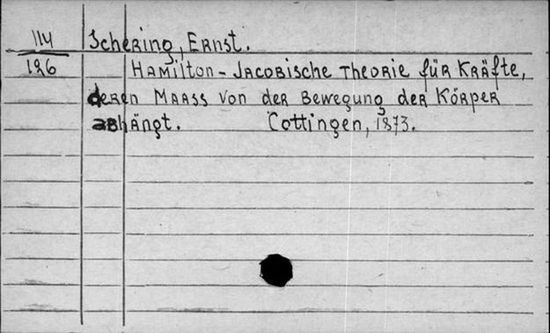 114 Schering, Ernst.
126 Hamilton-Jacobische Theorie für Kräfte,
deren Maass von der Bewegung der Körper
abhängt. Cottingen, 1873.